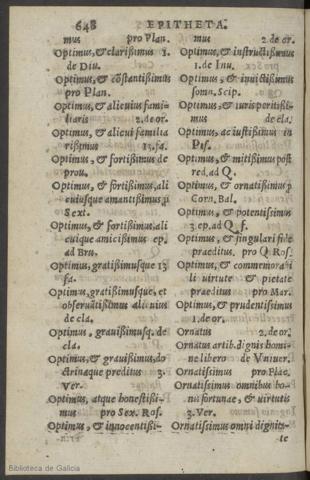 648 EPITHETA.
mus pro Plan.
Optimus, & clarißimus 1.
de Diu.
Optimus, & cõstantißimus
pro Plan.
Optimus, & alicuius fami-
liaris 2. de or.
Optimus, & alicui familia
rißimus 13. fa.
Optimus, & fortißimus de
prou.
Optimus, & fortißimus, ali
cuiusque amantißimus p
Sext.
Optimus, & fortißimus, ali
cuique amicißimus ep.
ad Bru.
Optimus, gratißimusque 13
fa.
Optimus, gratißimusque, et
obseruãtißimus alicuius
de cla.
Optimus, grauißimusq. de
cla.
Optimus, & grauißimus, do
ctrinaque preditus 3.
Ver.
Optimus, atque honestißi-
mus pro Sex. Ros.
Optimus, & innocentißi-
mus 2. de or.
Optimus, & instructißimus
1. de Inu.
Optimus, & inuictißimus
somn. Scip.
Optimus, & iurisperitißi-
mus de cla.
Optimus, ac iustißimus in
Pis.
Optimus, & mitißimus post
red. ad Q.
Optimus, & ornatißimus p
Corn. Bal.
Optimus, & potentißimus
3. ep. ad Q. f.
Optimus, & singulari fide
praeditus pro Q. Ros.
Optimus, & commemorãn
li uirtute & pietate
praeditus pro Mar.
Optimus, & prudentißimus
1. de or.
Ornatus 2. de or.
Ornatus artib. dignis homi-
ne libero de Vniuer.
Ornatißimus pro Plãc.
Ornatißimus omnibus bo-
nis fortunae, & uirtutis
3. Ver.
Ornatißimus omni dignita-
te
Biblioteca de Galicia